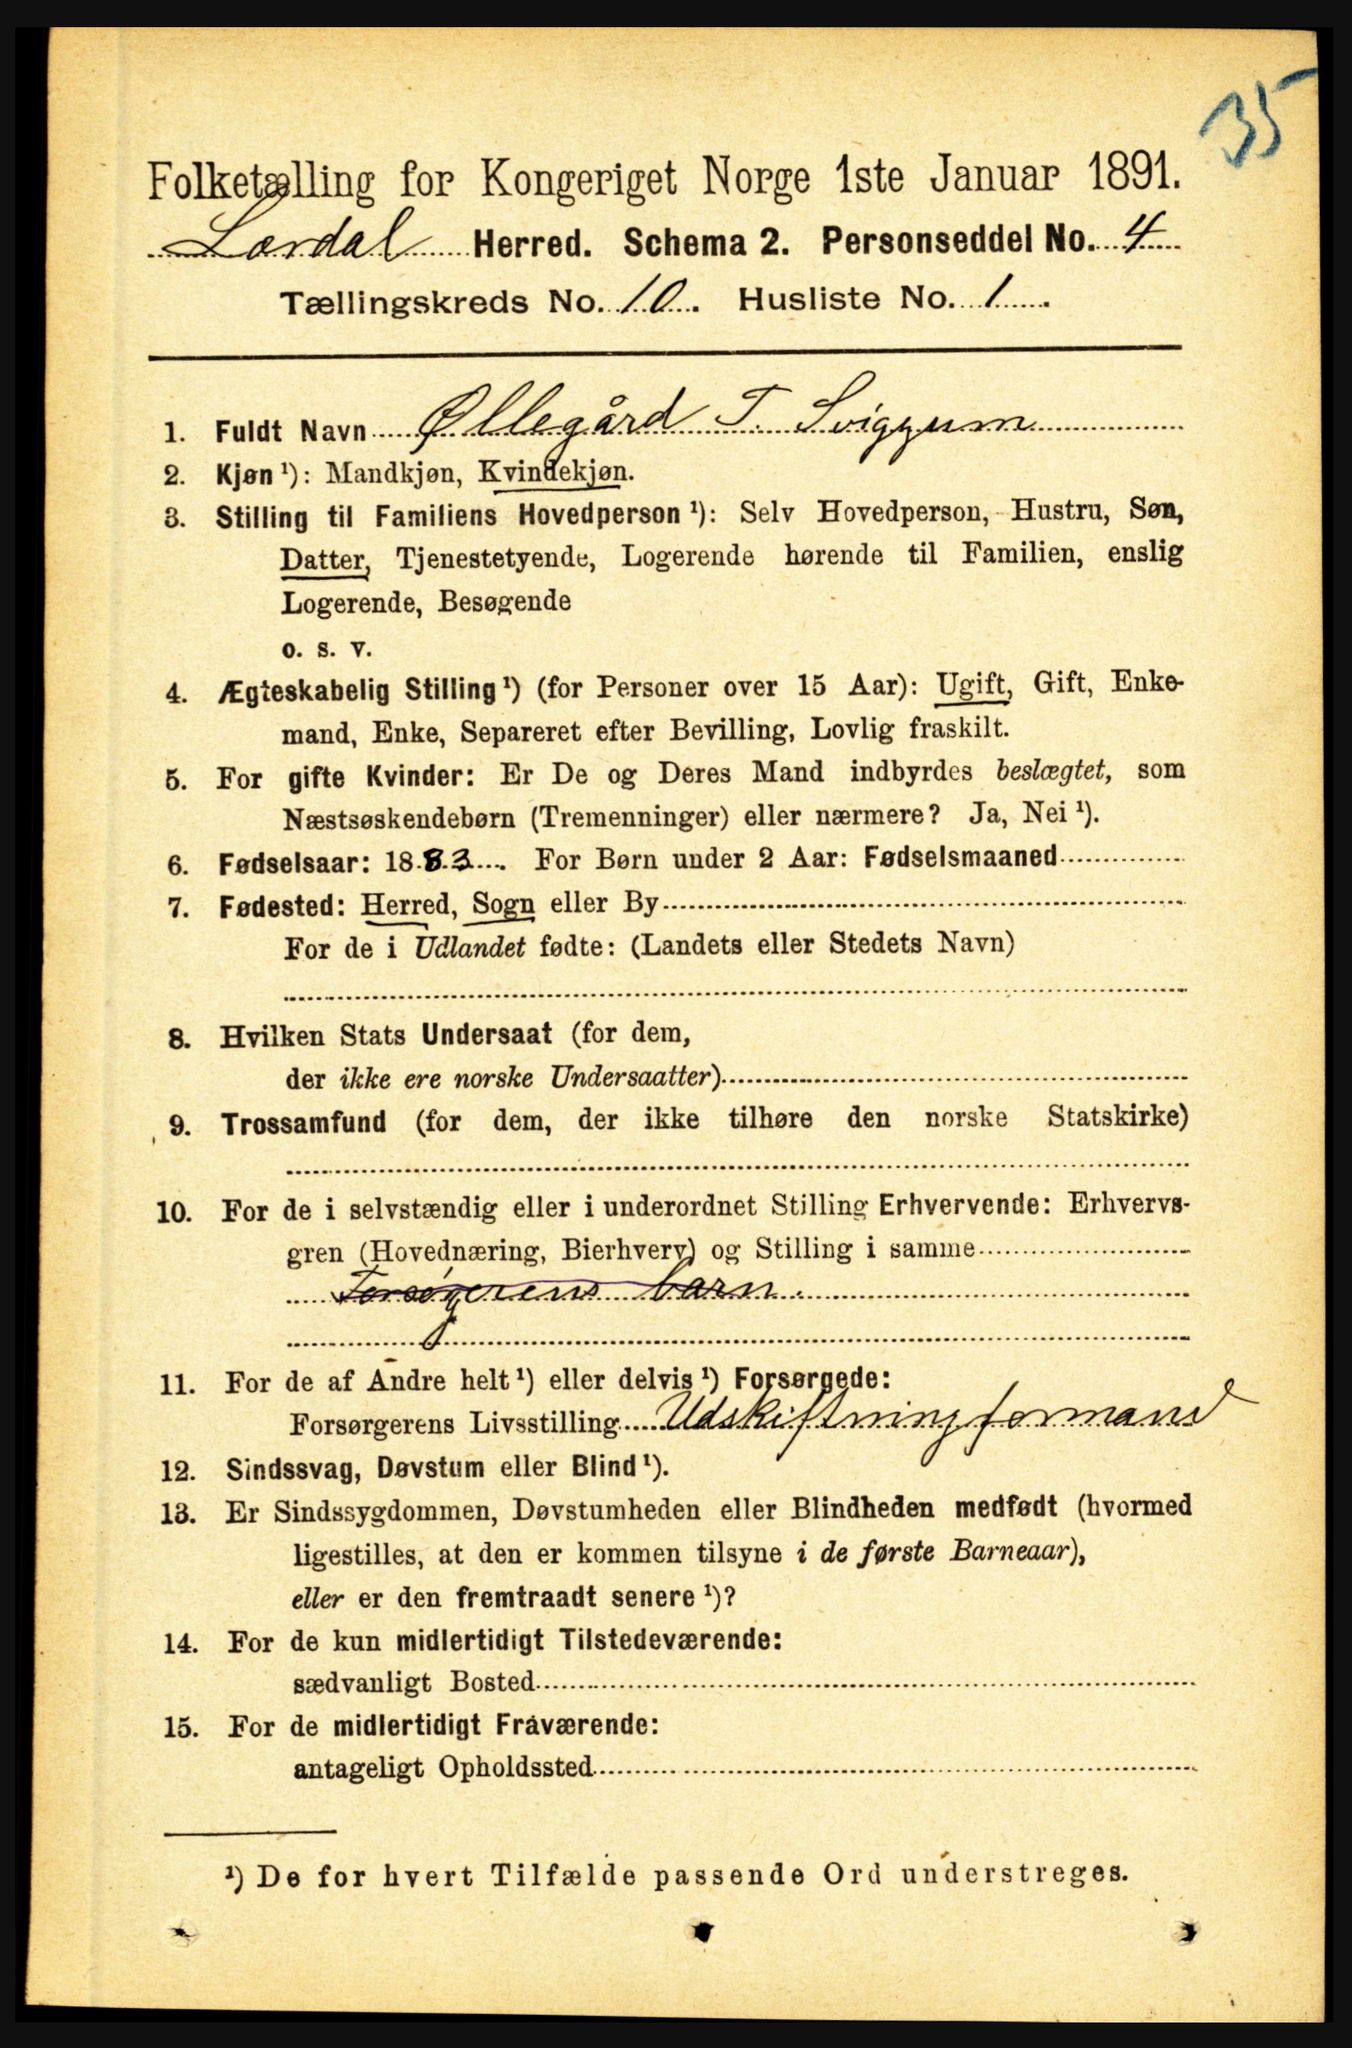 35
Folketælling for Kongeriget Norge 1ste Januar 1891.
Lærdal Herred. Schema 2. Personseddel No. 4
Tællingskreds No. 10. Husliste No. 1.
1. Fuldt Navn Øllegård T. Sviggum
2. Kjøn ¹): Mandkjøn, Kvindekjøn.
3. Stilling til Familiens Hovedperson ¹): Selv Hovedperson, Hustru, Søn,
Datter, Tjenestetyende, Logerende hørende til Familien, enslig
Logerende, Besøgende
o. s. v.
4. Ægteskabelig Stilling ¹) (for Personer over 15 Aar): Ugift, Gift, Enke-
mand, Enke, Separeret efter Bevilling, Lovlig fraskilt.
5. For gifte Kvinder: Er De og Deres Mand indbyrdes beslægtet, som
Næstsøskendebørn (Tremenninger) eller nærmere? Ja, Nei ¹).
6. Fødselsaar: 1883. For Børn under 2 Aar: Fødselsmaaned
7. Fødested: Herred, Sogn eller By
For de i Udlandet fødte: (Landets eller Stedets Navn)
8. Hvilken Stats Undersaat (for dem,
der ikke ere norske Undersaatter)
9. Trossamfund (for dem, der ikke tilhøre den norske Statskirke)
10. For de i selvstændig eller i underordnet Stilling Erhvervende: Erhvervs-
gren (Hovednæring, Bierhverv) og Stilling i samme
Forsøgerens barn.
11. For de af Andre helt ¹) eller delvis ¹) Forsørgede:
Forsørgerens Livsstilling Udskiftningformand
12. Sindssvag, Døvstum eller Blind ¹).
13. Er Sindssygdommen, Døvstumheden eller Blindheden medfødt (hvormed
ligestilles, at den er kommen tilsyne i de første Barneaar),
eller er den fremtraadt senere ¹)?
14. For de kun midlertidigt Tilstedeværende:
sædvanligt Bosted
15. For de midlertidigt Fraværende:
antageligt Opholdssted
¹) De for hvert Tilfælde passende Ord understreges.